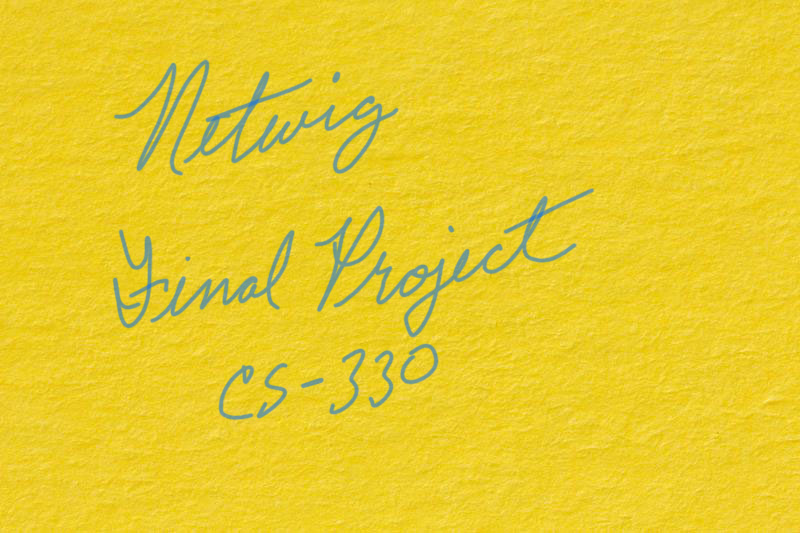 Netwig
Final Project
CS-330